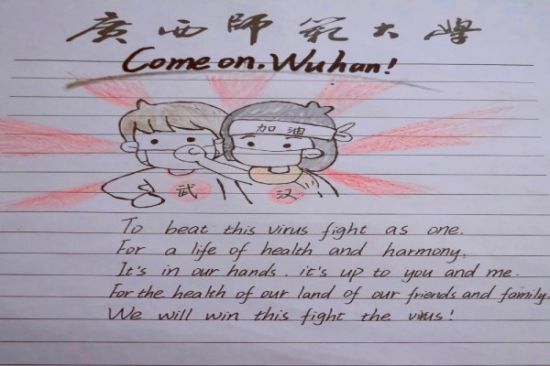 廣西師範大學
Come on. Wuhan!
加油
武 汉
To beat this virus fight as one.
For a life of health and harmony.
It's in our hands. it's up to you and me.
For the health of our land of our friends and family.
We will win this fight the virus!